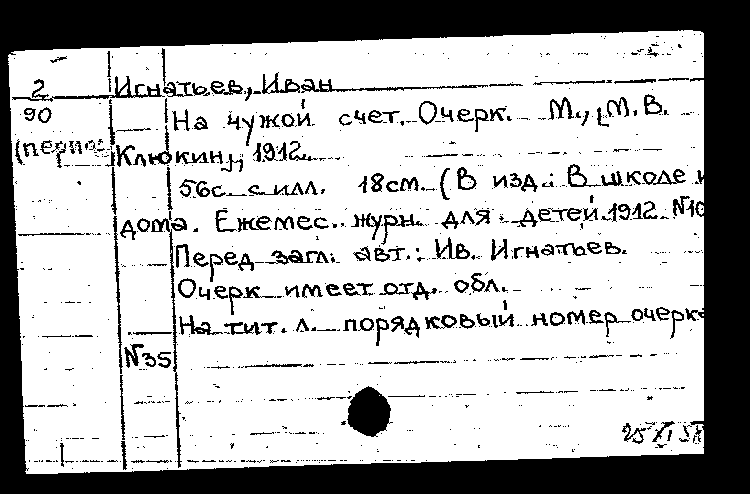 2 Игнатьев, Иван
90 На чужой счет. Очерк. М., [М.В.
(перио: Клюкин], 1912.
56с. с илл. 18см. (В изд.: В школе и
дома. Ежемес. журн. для детей.1912. №10
Перед загл. авт.: Ив. Игнатьев.
Очерк имеет отд. обл.
На тит. л. порядковый номер очерка
№35
25 XI 58